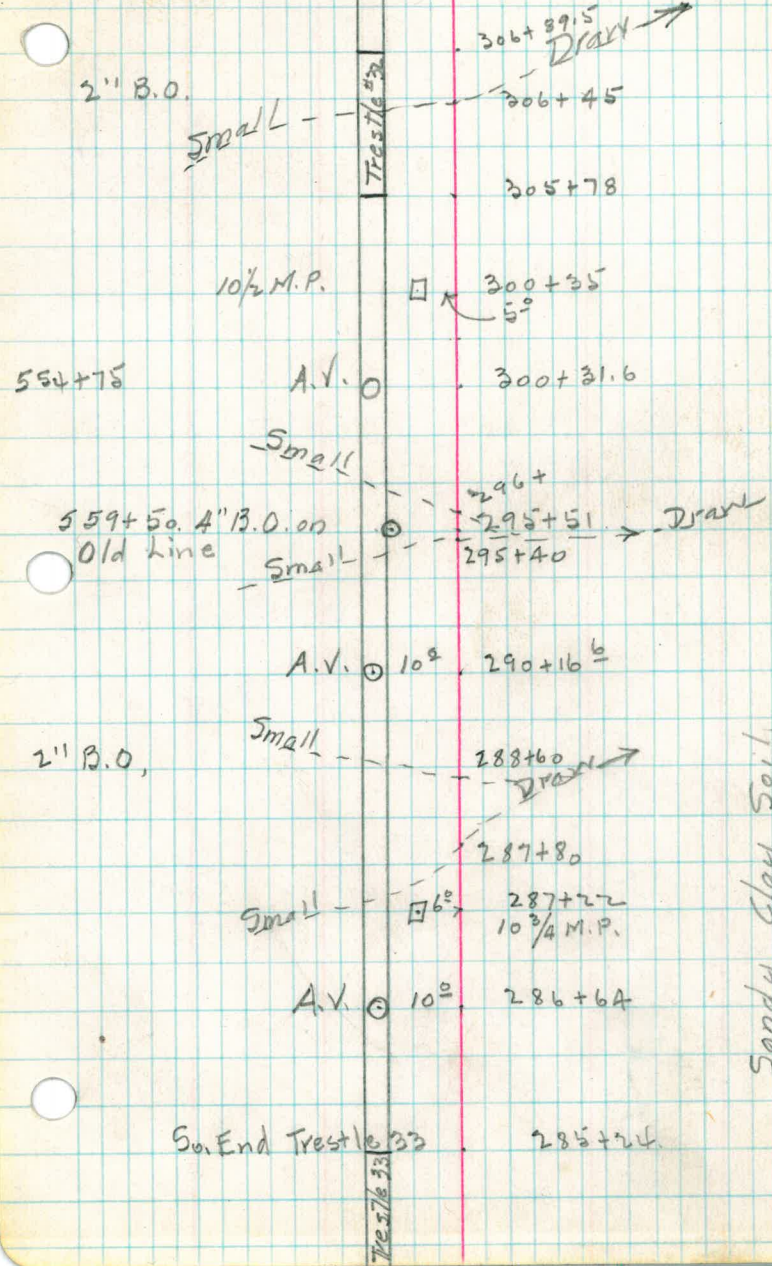 306+89.5
Draw
2" B.O.
Trestle #32
306+45
Small
305+78
10½ M.P.
300+35
5⁰
554+75
A.V.
300+31.6
Small
296+
559+50. 4" B.O. on
Old Line
295+51
Draw
Small
295+40
A.V.
10⁰
290+16 6
Small
2" B.O.
288+60
Draw
287+80
Small
6⁰
287+22
10 3/4 M.P.
A.V.
10⁰
286+64
Sandy Clay Soil
So. End Trestle 33
285+24
Trestle 33